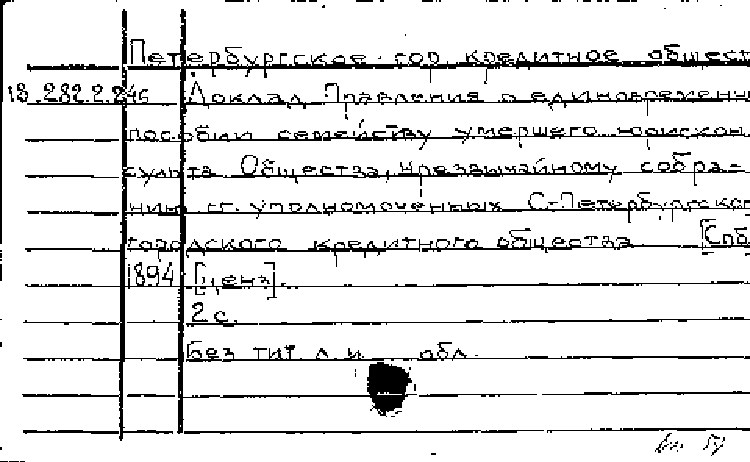 Петербургское гор. кредитное общест
18.282.2.246 Доклад Правления о единовременн
пособии семейству умершего юрискон
сульта Общества, чрезвычайному собра-
нию гг. уполномоченных С.-Петербургског
городского кредитного общества [Спб
1894] [ценз].
2 с.
Без тит. л. и обл.